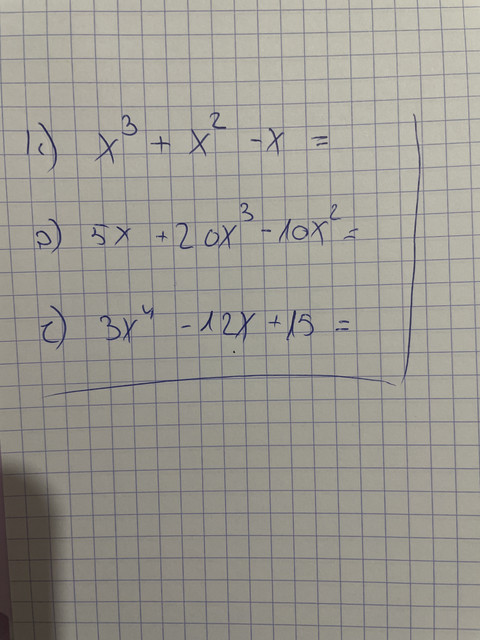 k) x³ + x² - x =
s) 5x + 20x³ - 10x² =
c) 3x⁴ - 12x + 15 =